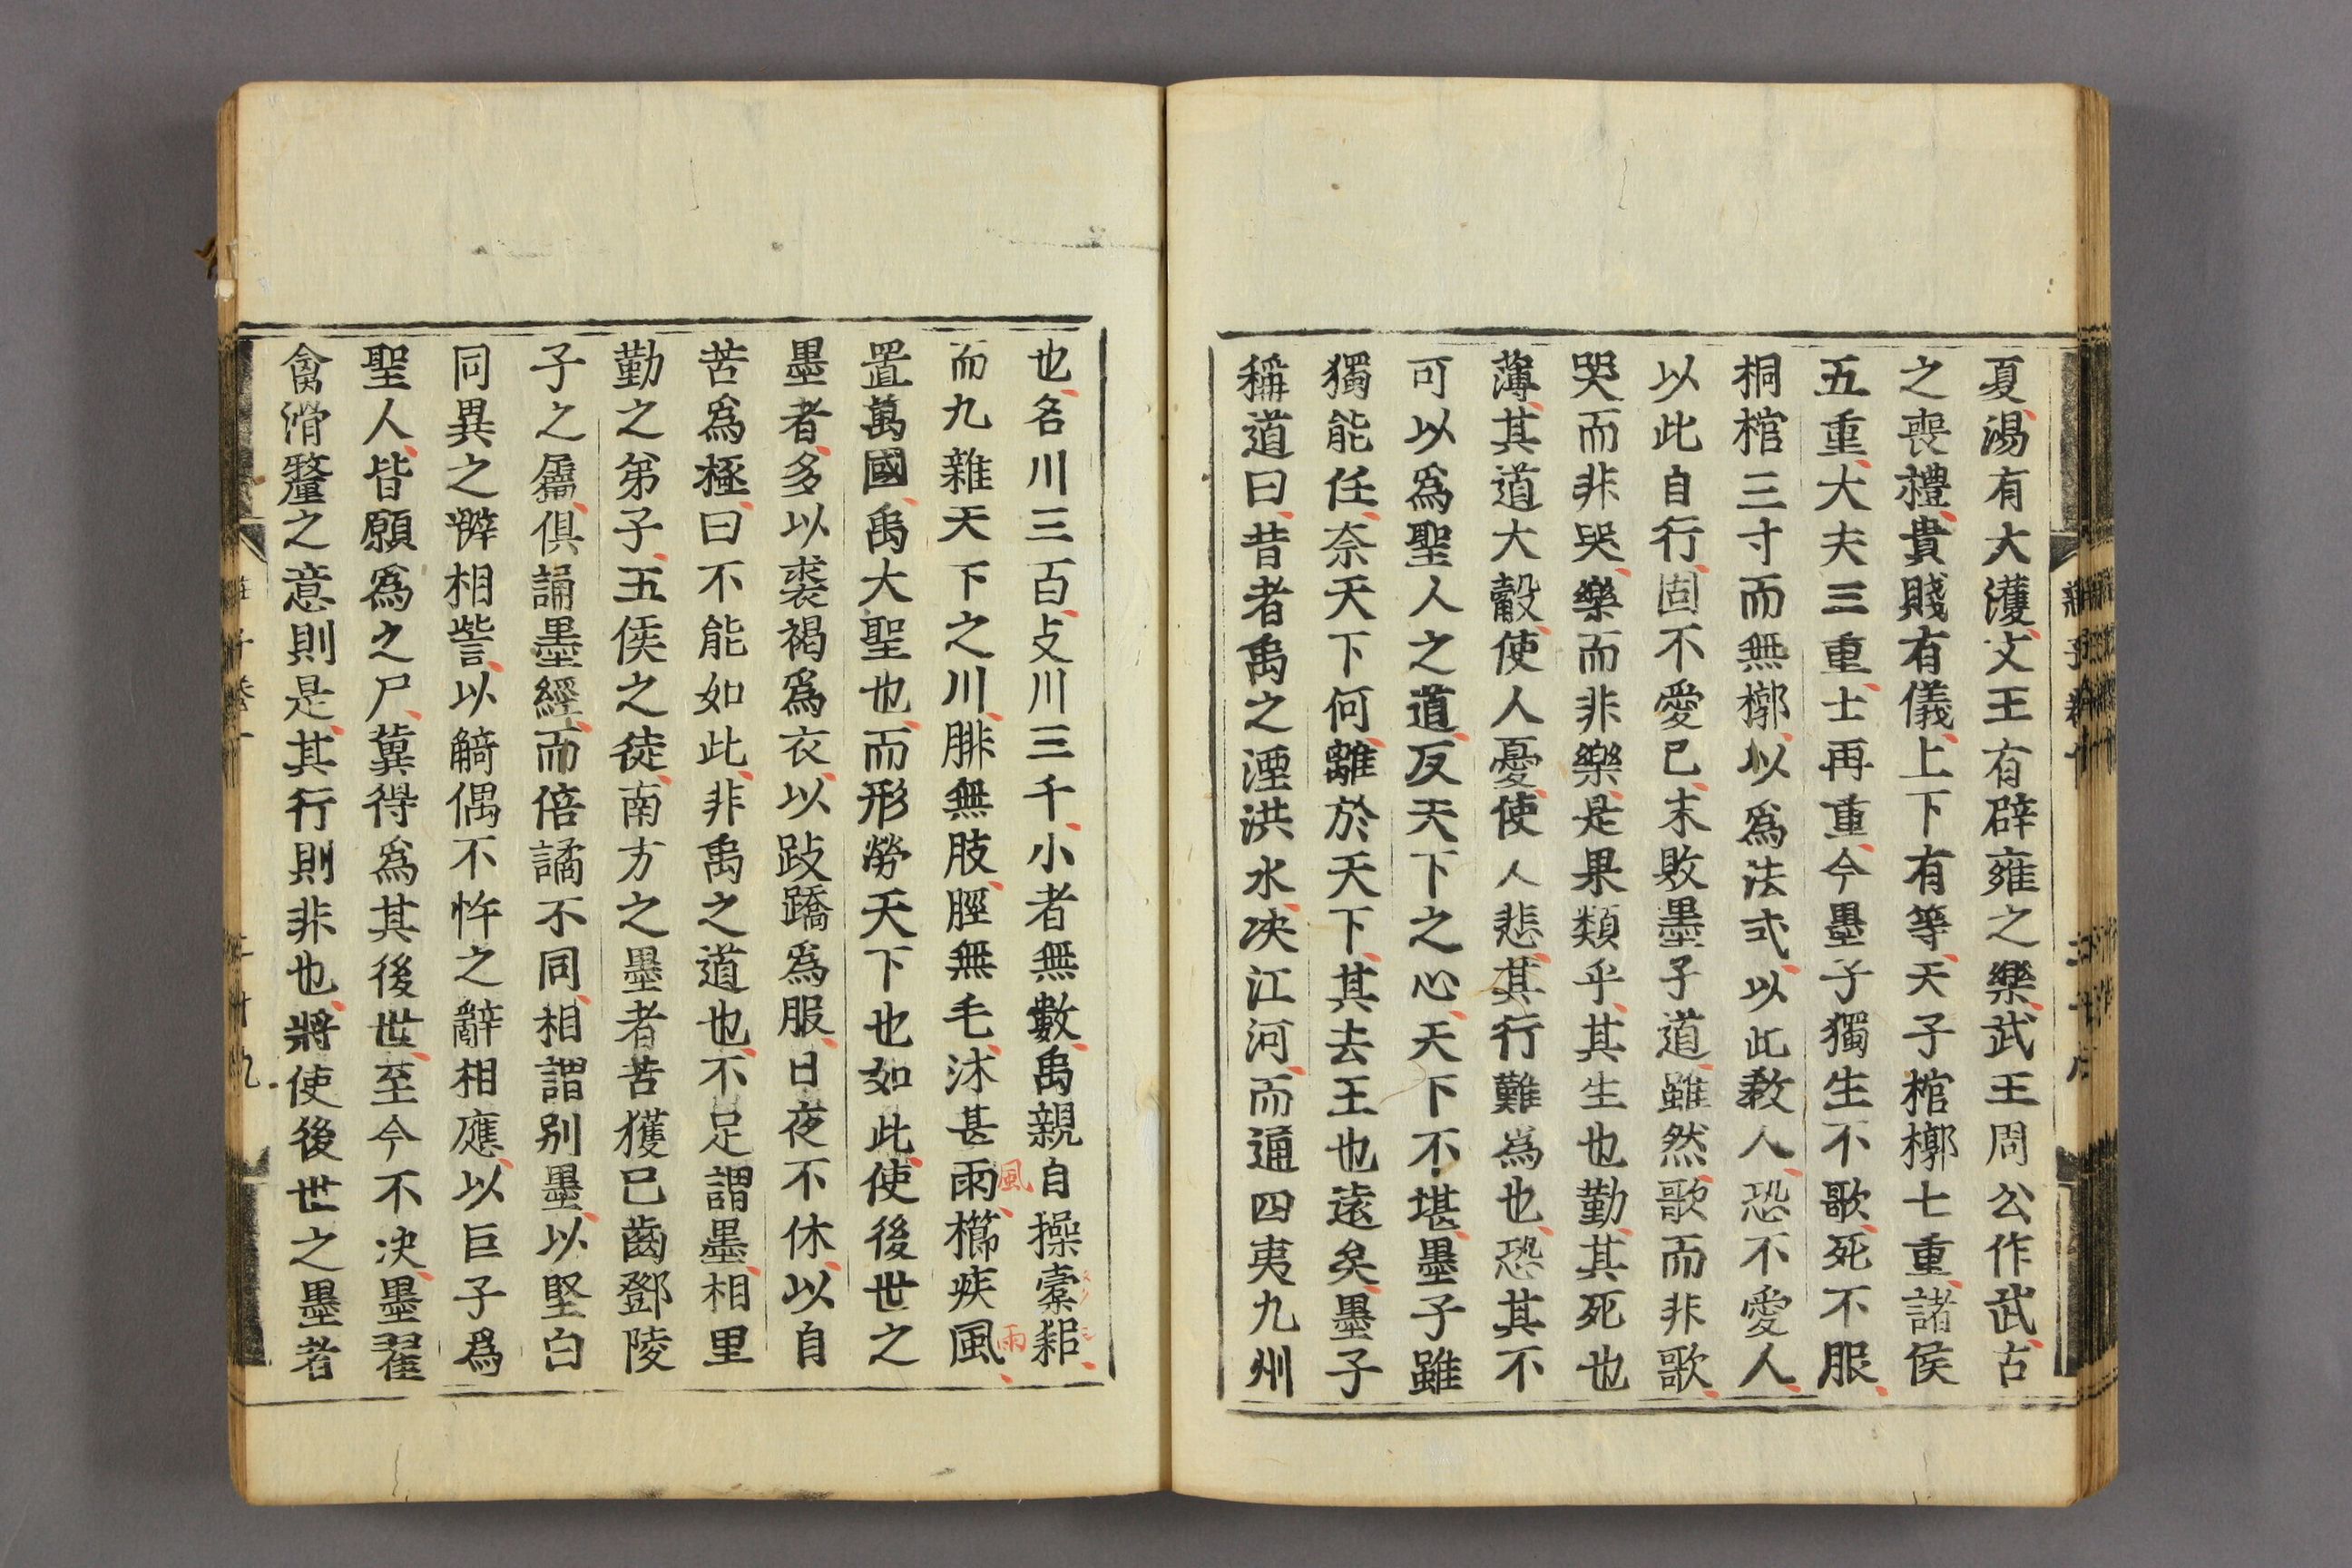 夏湯有大濩文王有辟雍之樂武王周公作武古
之喪禮貴賤有儀上下有等天子棺槨七重諸侯
五重大夫三重士再重今墨子獨生不歌死不服
桐棺三寸而無槨以爲法式以此敎人恐不愛人
以此自行固不愛已末敗墨子道雖然歌而非歌
哭而非哭樂而非樂是果類乎其生也勤其死也
薄其道大觳使人憂使人悲其行難為也恐其不
可以爲聖人之道反天下之心天下不堪墨子雖
獨能任奈天下何離於天下其去王也遠矣墨子
稱道曰昔者禹之湮洪水决江河而通四夷九州
也名川三百攴川三千小者無數禹親自操橐耜
而九雜天下之川腓無胈脛無毛沐甚雨櫛疾風
風
雨
置萬國禹大聖也而形勞天下也如此使後世之
墨者多以裘褐爲衣以跂蹻爲服日夜不休以自
苦爲極曰不能如此非禹之道也不足謂墨相里
勤之弟子五侯之徒南方之墨者苦獲已齒鄧陵
子之屬俱誦墨經而倍譎不同相謂别墨以堅白
同異之辯相訾以觭偶不忤之辭相應以巨子爲
聖人皆願爲之尸冀得爲其後世至今不决墨翟
禽滑釐之意則是其行則非也將使後世之墨者